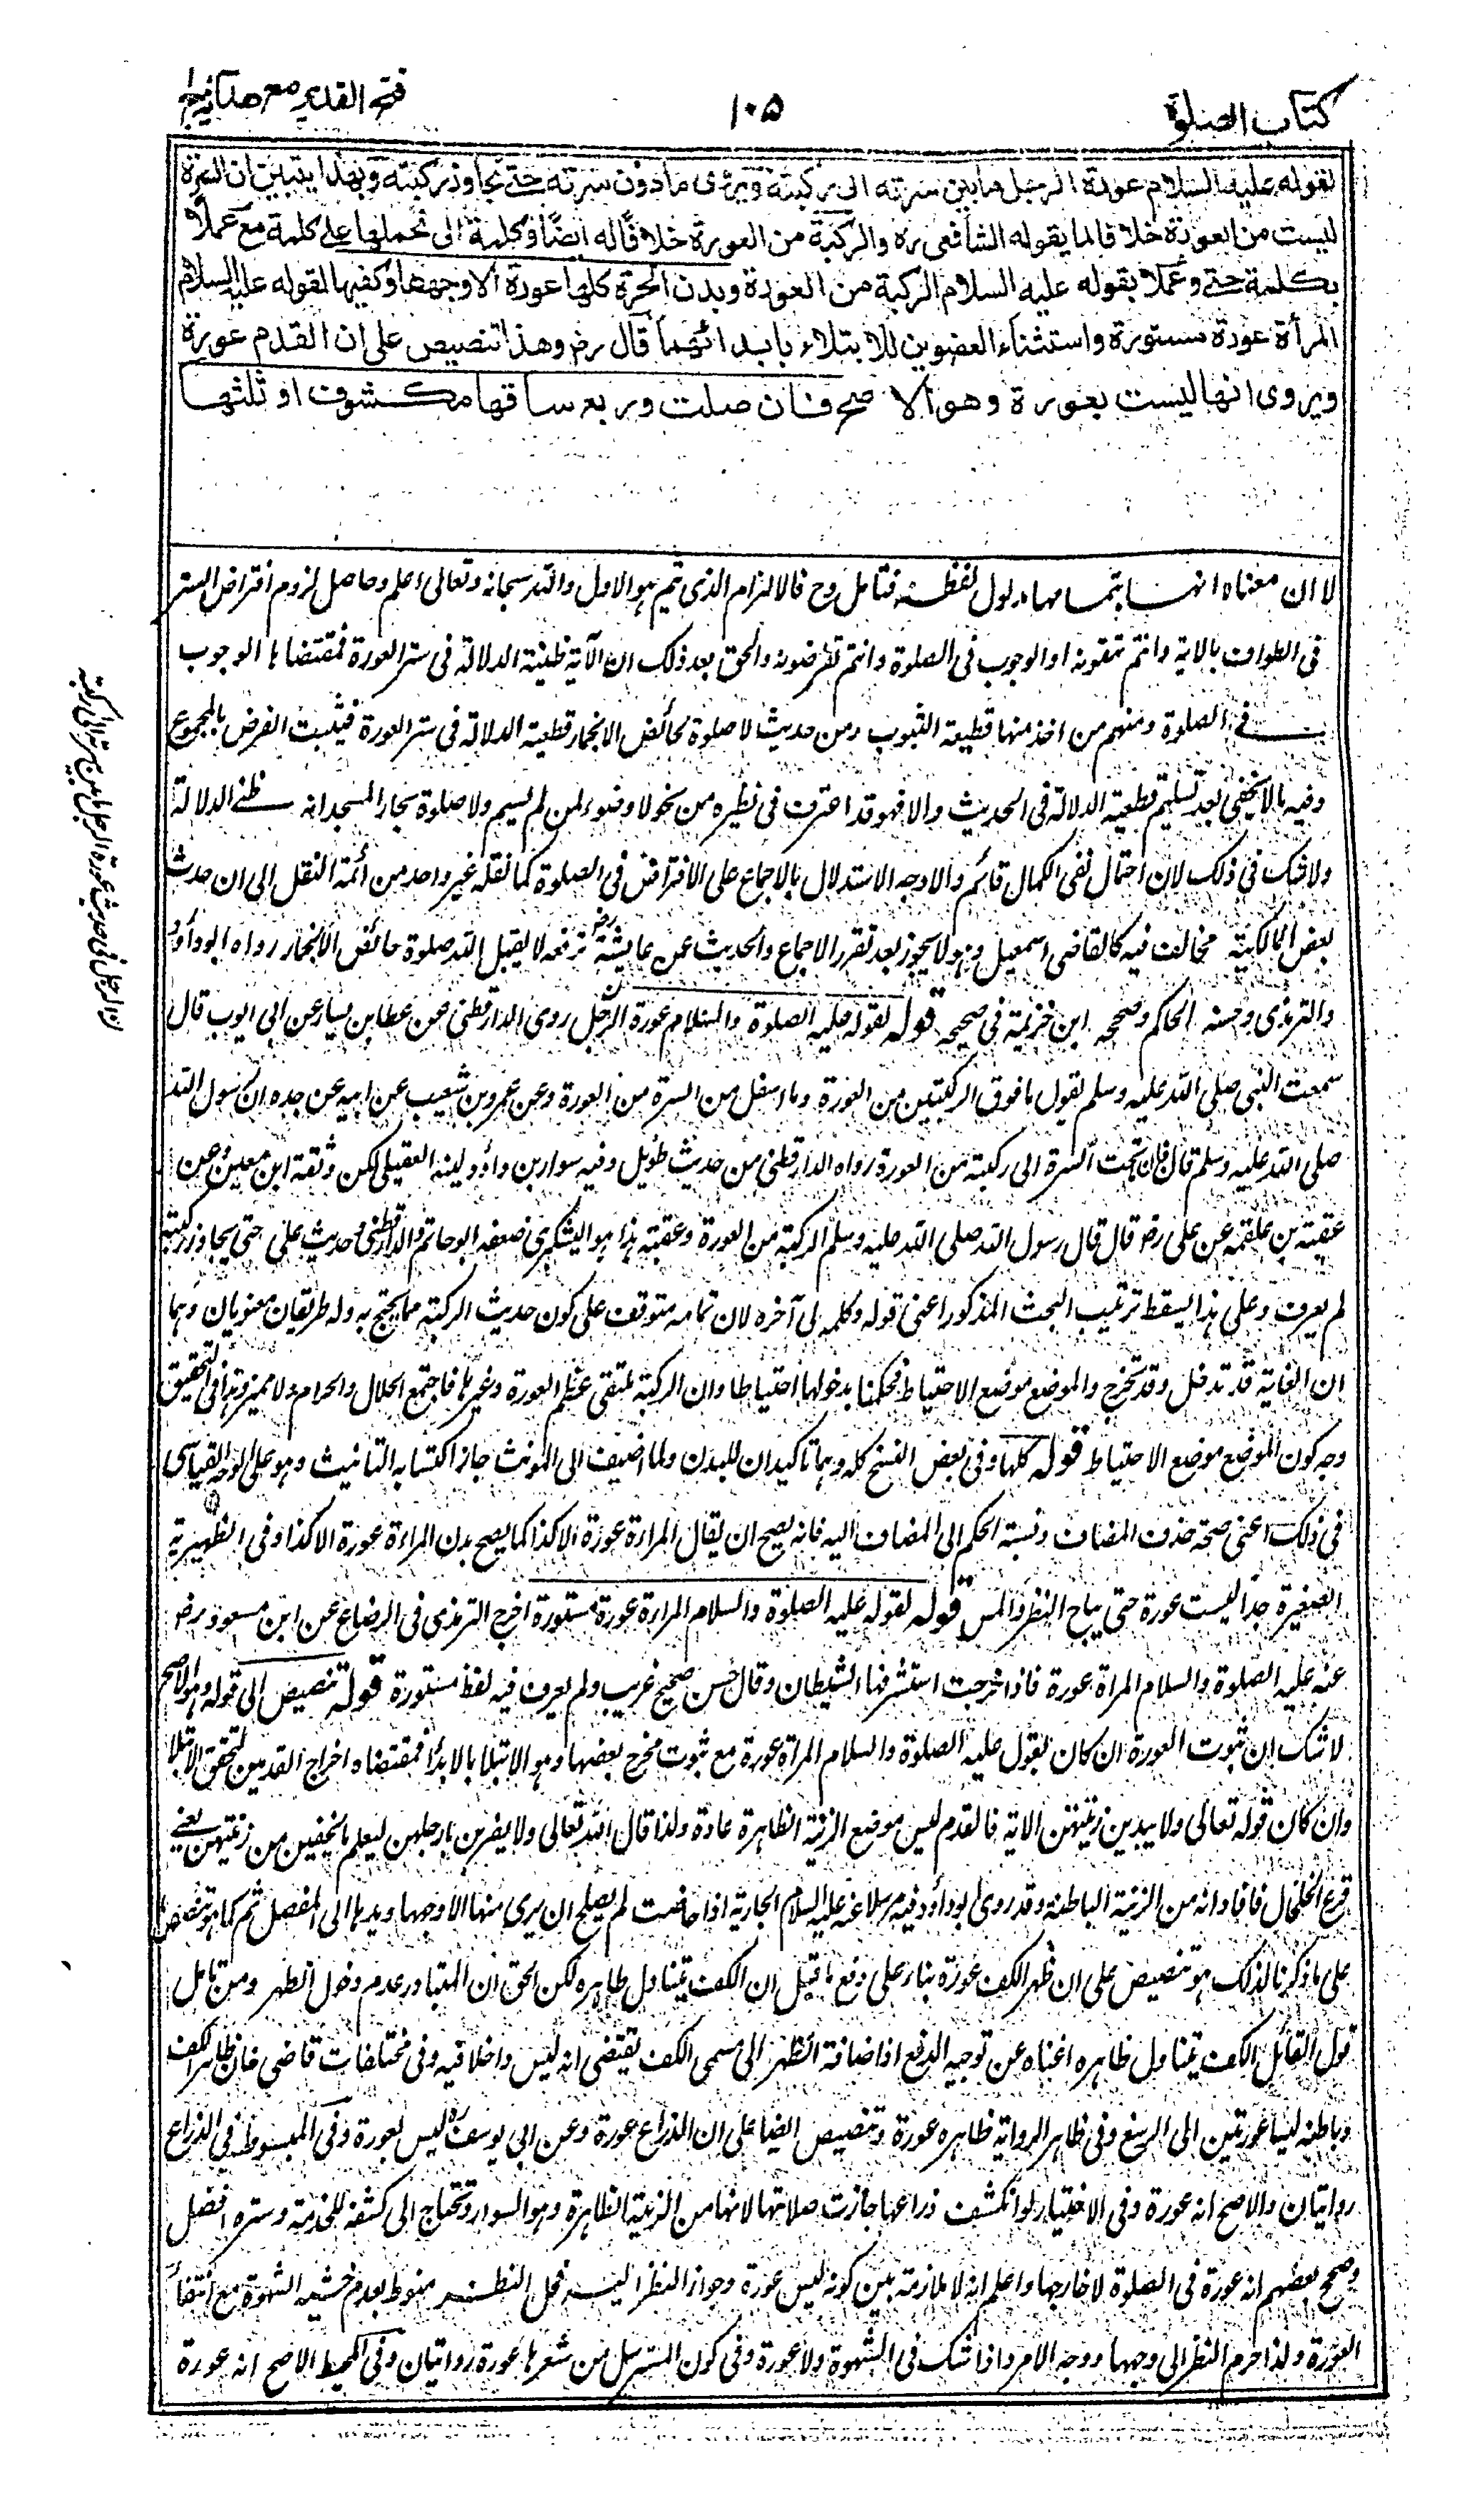 كتاب الصلوة
١٠٥
فتح القدير مع هداية ج ١
لقوله عليه السلام عورة الرجل ما بين سرته الى ركبته ويروى ما دون سرته حتى تجاوز ركبته وبهذا يتبين ان السرة
ليست من العورة خلافا لما يقوله الشافعى ره والركبة من العورة خلافا له ايضا وكلمة الى نحملها على كلمة مع عملا
بكلمة حتى وعملا بقوله عليه السلام الركبة من العورة وبدن الحرة كلها عورة الا وجهها وكفيها لقوله عليه السلام
المرأة عورة مستورة واستثناء العضوين للابتلاء بابدائهما قال رض وهذا تنصيص على ان القدم عورة
ويروى انها ليست بعورة وهو الاصح فان صلت وربع ساقها مكشوف او ثلثها
لا ان معناه انها بتمامها مدلول لفظه فتامل وح فالالزام الذى تم هو الاول والله سبحانه وتعالى اعلم وحاصل لزوم افتراض الستر
فى الطواف بالاية وانتم تنفونه او الوجوب فى الصلوة وانتم تفرضونه والحق بعد ذلك ان الآية ظنية الدلالة فى ستر العورة فمقتضاها الوجوب
فى الصلوة ومنهم من اخذ منها قطعية الثبوت ومن حديث لا صلوة لحائض الا بخمار قطعية الدلالة فى ستر العورة فيثبت الفرض بالمجموع
وفيه ما لا يخفى بعد تسليم قطعية الدلالة فى الحديث والا فهو قد اعترف فى نظيره من نحو لا وضوء لمن لم يسم ولا صلوة بجار المسجد انه ظنى الدلالة
ولا شك فى ذلك لان احتمال نفى الكمال قائم والاوجه الاستدلال بالاجماع على الافتراض فى الصلوة كما نقله غير واحد من أئمة النقل الى ان حدث
بعض المالكية فخالف فيه كالقاضى اسمعيل وهو لا يجوز بعد تقرر الاجماع والحديث عن عايشة رض ترفعه لا يقبل الله صلوة حائض الا بخمار رواه ابو داود
والترمذى وحسنه الحاكم وصححه ابن خزيمة فى صحيحه قوله لقوله عليه الصلوة والسلام عورة الرجل روى الدارقطنى عن عطا بن يسار عن ابى ايوب قال
سمعت النبى صلى الله عليه وسلم يقول ما فوق الركبتين من العورة وما اسفل من السرة من العورة وعن عمرو بن شعيب عن ابيه عن جده ان رسول الله
صلى الله عليه وسلم قال فان تحت السرة الى ركبته من العورة رواه الدارقطنى من حديث طويل وفيه سوار بن داود لينه العقيلى لكن وثقه ابن معين وعن
عقبة بن علقمة عن على رض قال قال رسول الله صلى الله عليه وسلم الركبة من العورة وعقبة هذا هو اليشكرى ضعفه ابو حاتم والدارقطنى وحديث على حتى يجاوز ركبتيه
لم يعرف وعلى هذا يسقط ترتيب البحث المذكور اعنى قوله وكلمة الى آخره لان تمامه متوقف على كون حديث الركبة مما يحتج به وله طريقان معنويان وهما
ان الغاية قد تدخل وقد تخرج والموضع موضع الاحتياط فحكمنا بدخولها احتياطا وان الركبة ملتقى عظم العورة وغيرها فاجتمع الحلال والحرام ولا مميز وهذا فى التحقيق
وجه كون الموضع موضع الاحتياط قوله كلها وفى بعض النسخ كله وهما تاكيدان للبدن ولما اضيف الى المونث جاز اكتسابه التانيث وهو على الوجه القياسى
فى ذلك اعنى صحة حذف المضاف ونسبة الحكم الى المضاف اليه فانه يصح ان يقال المراءة عورة الا كذا كما يصح بدن المراءة عورة الا كذا وفى الظهيرية
الصغيرة جدا ليست عورة حتى يباح النظر والمس قوله لقوله عليه الصلوة والسلام المراءة عورة مستورة اخرج الترمذى فى الرضاع عن ابن مسعود رض
عنه عليه الصلوة والسلام المراة عورة فاذا خرجت استشرفها الشيطان وقال حسن صحيح غريب ولم يعرف فيه لفظ مستورة قوله تنصيص الى قوله وهو الاصح
لا شك ان ثبوت العورة ان كان بقوله عليه الصلوة والسلام المراة عورة مع ثبوت مخرج بعضها وهو الابتلا بالابدا فمقتضاه اخراج القدمين لتحقق الابتلا
وان كان قوله تعالى ولا يبدين زينتهن الاية فالقدم ليس موضع الزينة الظاهرة عادة ولذا قال الله تعالى ولا يضربن بارجلهن ليعلم ما يخفين من زينتهن يعنى
قرع الخلخال فافاد انه من الزينة الباطنة وقد روى ابو داود فيه مرسلا عنه عليه السلام الجارية اذا حاضت لم يصلح ان يرى منها الا وجهها ويدها الى المفصل ثم كما هو تنصيص
على ما ذكرنا لذلك هو تنصيص على ان ظهر الكف عورة بناء على دفع ما قيل ان الكف يتناول ظاهره لكن الحق ان المتبادر عدم دخول الظهر ومن تامل
قول القائل الكف يتناول ظاهره اغناه عن توجيه الدفع اذ اضافة الظهر الى مسمى الكف يقتضى انه ليس داخلا فيه وفى مختلفات قاضى خان ظاهر الكف
وباطنه ليسا عورتين الى الرسغ وفى ظاهر الرواية ظاهره عورة وتنصيص ايضا على ان الذراع عورة وعن ابى يوسف ره ليس بعورة وفى المبسوط فى الذراع
روايتان والاصح انه عورة وفى الاختيار لو انكشف ذراعها جازت صلاتها لانها من الزينة الظاهرة وهو السوار وتحتاج الى كشفه للخدمة وستره افضل
وصحح بعضهم انه عورة فى الصلوة لا خارجها واعلم انه لا ملازمة بين كونه ليس عورة وجواز النظر اليه فحل النظر منوط بعدم خشية الشهوة مع انتفاء
العورة ولذا حرم النظر الى وجهها ووجه الامرد اذا شك فى الشهوة ولا عورة وفى كون المسترسل من شعرها عورة روايتان وفى المحيط الاصح انه عورة